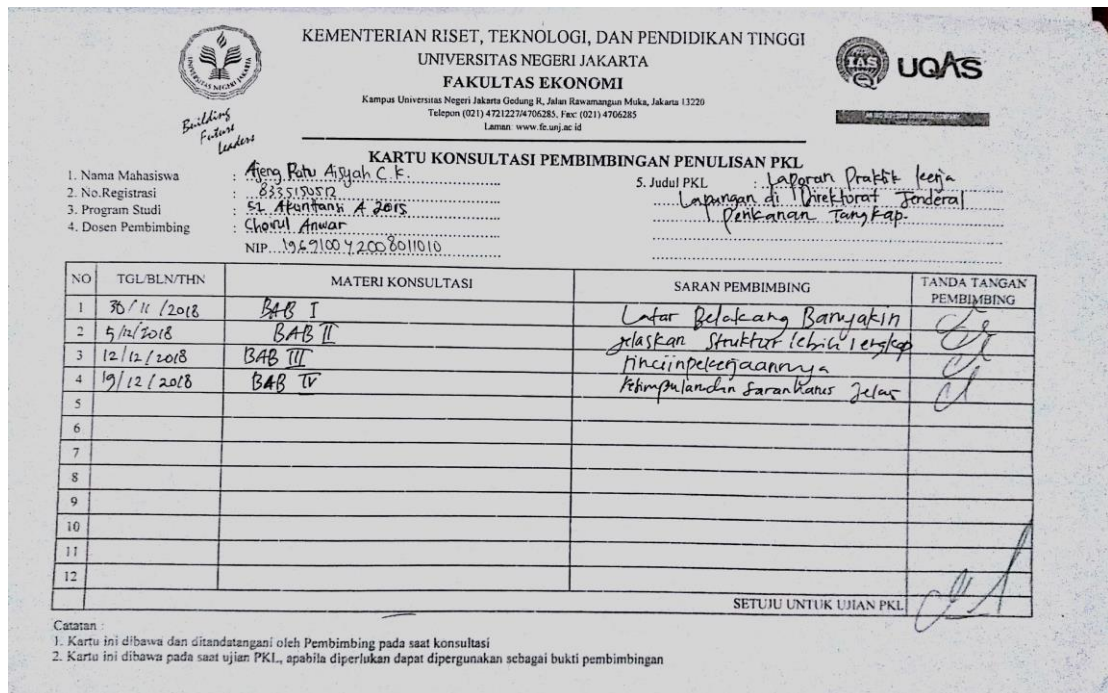 KEMENTERIAN RISET, TEKNOLOGI, DAN PENDIDIKAN TINGGI
UNIVERSITAS NEGERI JAKARTA
FAKULTAS EKONOMI
Kampus Universitas Negeri Jakarta Gedung R, Jalan Rawamangun Muka, Jakarta 13220
Telepon (021) 4721227/4706285, Fax: (021) 4706285
Laman: www.fe.unj.ac.id
UNIVERSITAS NEGERI JAKARTA
Building
Future
Leaders
IAS
UQAS
KARTU KONSULTASI PEMBIMBINGAN PENULISAN PKL
1. Nama Mahasiswa : Ajeng Ratu Aisyah C. K.
2. No.Registrasi : 8335150512
3. Program Studi : S1 Akuntansi A 2015
4. Dosen Pembimbing : Choirul Anwar
NIP. 196910042008011010
5. Judul PKL : Laporan Praktik Kerja
Lapangan di Direktorat Jenderal
Perikanan Tangkap.
NO TGL/BLN/THN MATERI KONSULTASI SARAN PEMBIMBING TANDA TANGAN PEMBIMBING
1 30/11/2018 BAB I Latar Belakang Banyakin
2 5/12/2018 BAB II Jelaskan Struktur lebih lengkap
3 12/12/2018 BAB III rinciin pekerjaannya
4 19/12/2018 BAB IV Kesimpulan dan Saran harus Jelas
5
6
7
8
9
10
11
12
SETUJU UNTUK UJIAN PKL
Catatan :
1. Kartu ini dibawa dan ditandatangani oleh Pembimbing pada saat konsultasi
2. Kartu ini dibawa pada saat ujian PKL, apabila diperlukan dapat dipergunakan sebagai bukti pembimbingan